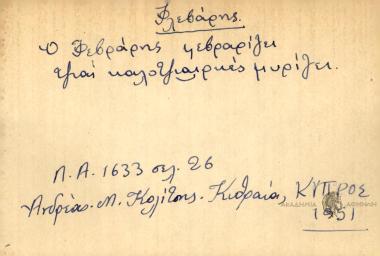 Φλεβάρης.
Ο Φεβράρης κεβραρίζει
τζιαί καλοτζιαιρκές μυρίζει.
Λ.Α. 1633 σελ. 26
Ανδρέας. Μ. Κολίτσης. Κυθραία, ΚΥΠΡΟΣ
ΑΚΑΔΗΜΙΑ ΑΘΗΝΩΝ
1951